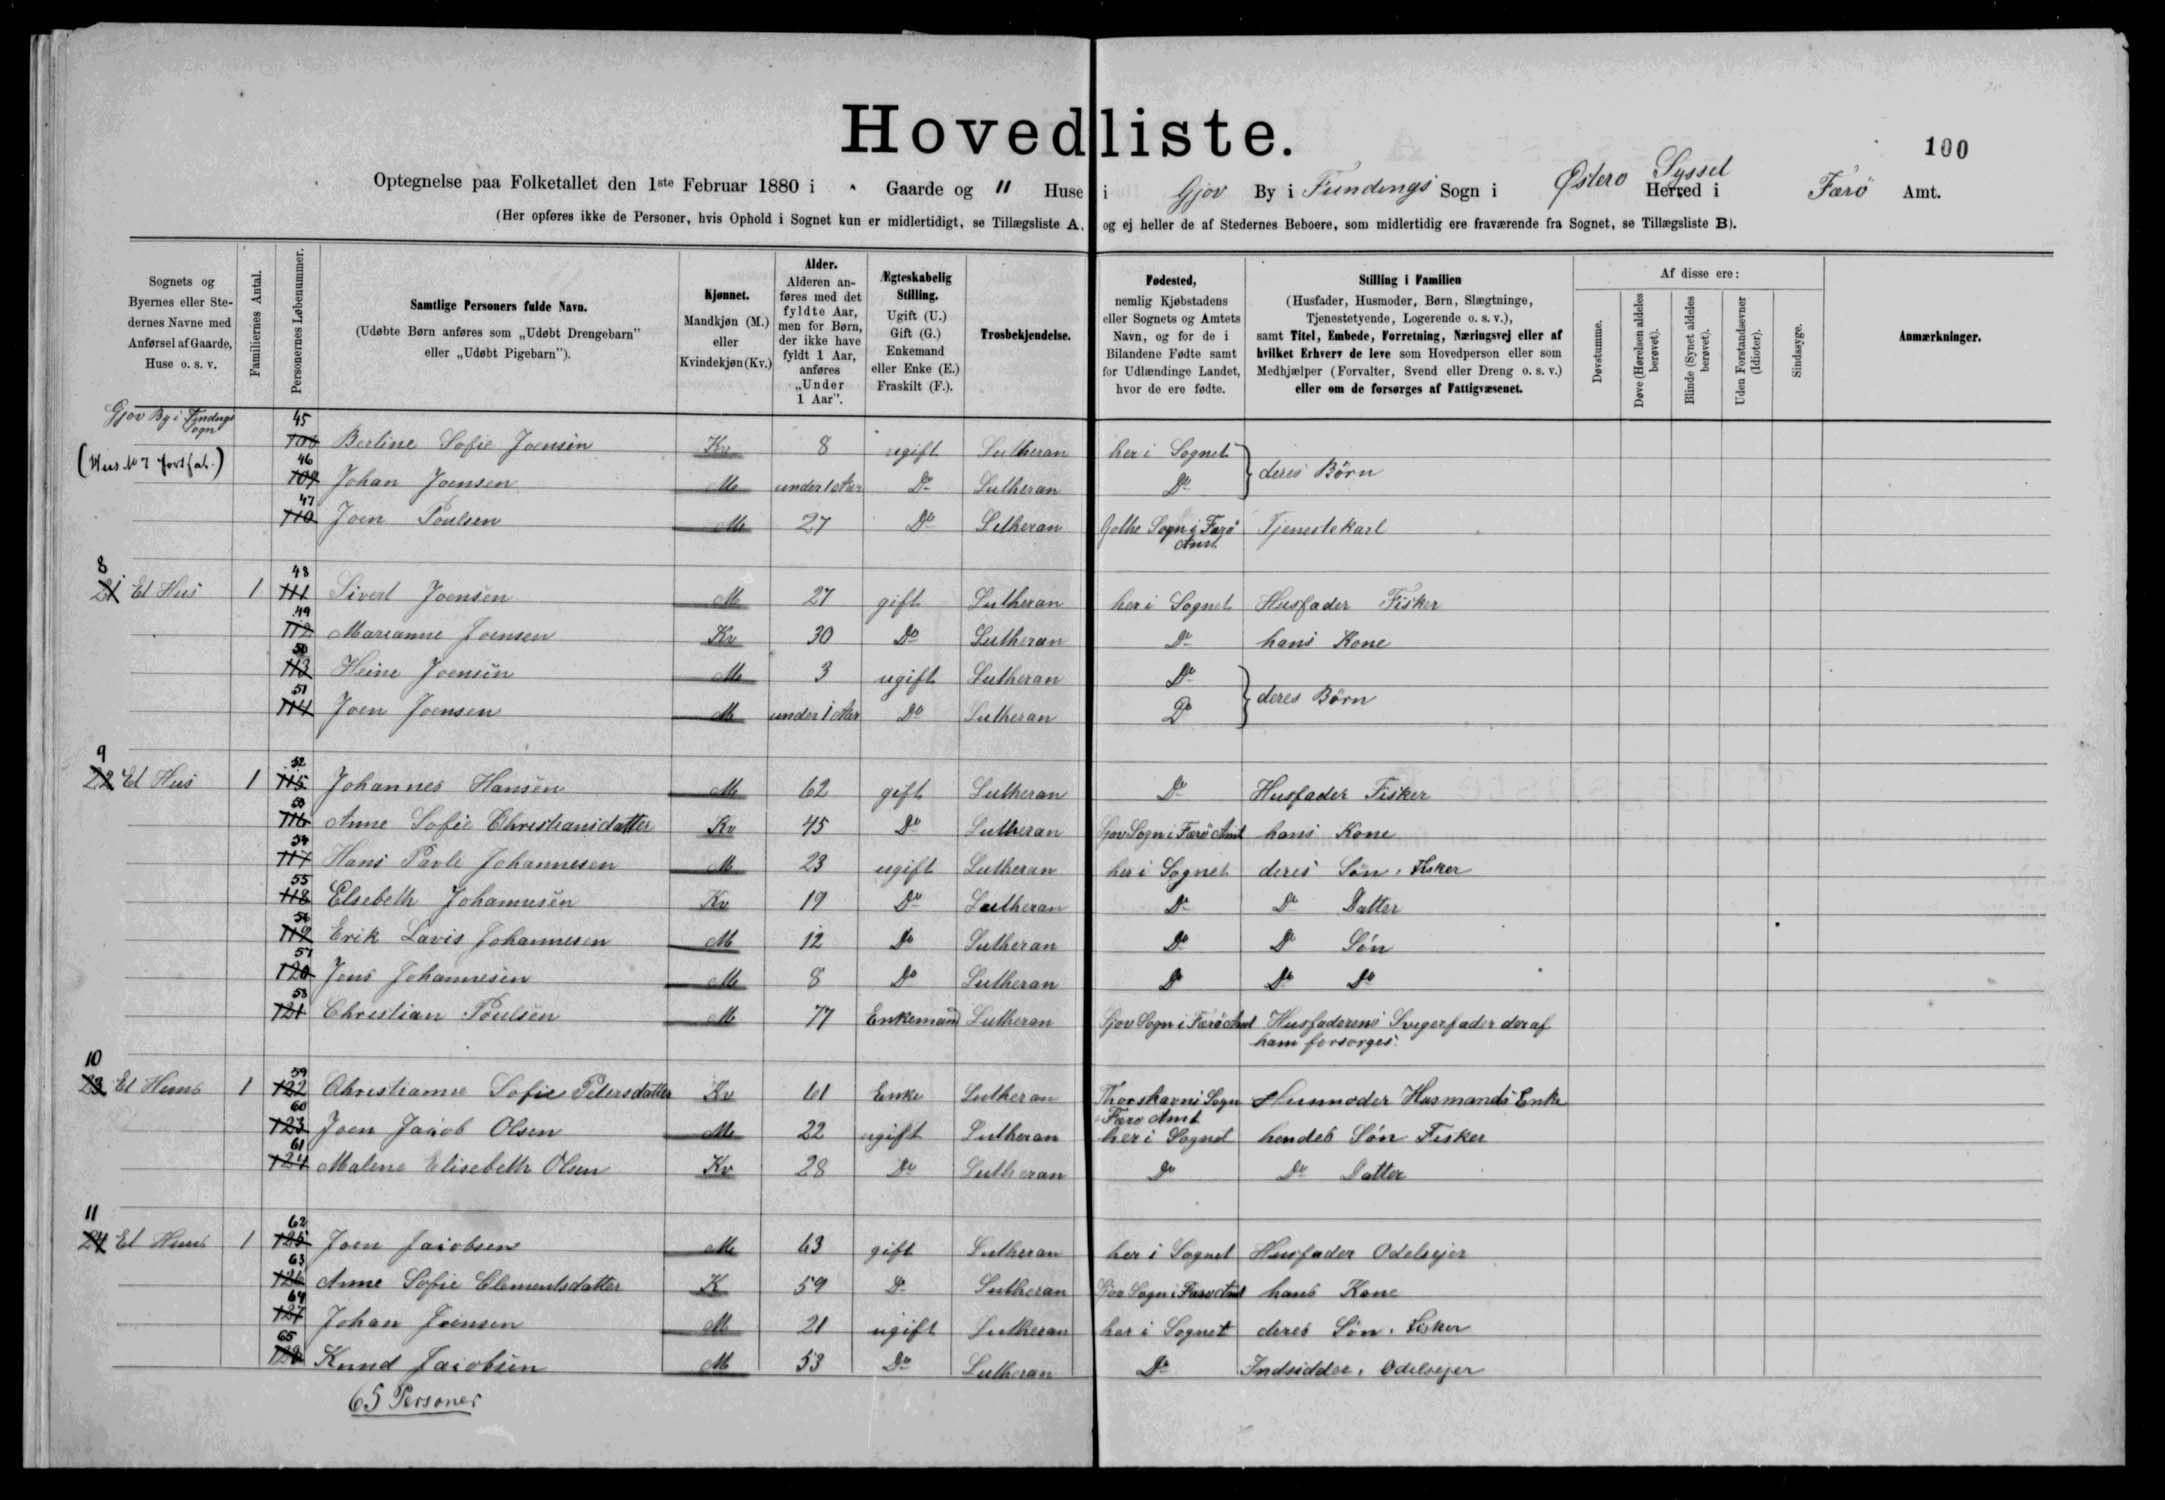 Hovedliste.
100
Optegnelse paa Folketallet den 1ste Februar 1880 i " Gaarde og 11 Huse i Gjov By i Fundings Sogn i Østerø Syssel Herred i Færø Amt.
(Her opføres ikke de Personer, hvis Ophold i Sognet kun er midlertidigt, se Tillægsliste A, og ej heller de af Stedernes Beboere, som midlertidig ere fraværende fra Sognet, se Tillægsliste B).
Sognets og Byernes eller Stedernes Navne med Anførsel af Gaarde, Huse o. s. v.
Familiernes Antal.
Personernes Løbenummer.
Samtlige Personers fulde Navn.
(Udøbte Børn anføres som „Udøbt Drengebarn" eller „Udøbt Pigebarn").
Kjønnet.
Mandkjøn (M.) eller Kvindekjøn (Kv.)
Alder.
Alderen anføres med det fyldte Aar, men for Børn, der ikke have fyldt 1 Aar, anføres „Under 1 Aar".
Ægteskabelig Stilling.
Ugift (U.) Gift (G.) Enkemand eller Enke (E.) Fraskilt (F.).
Trosbekjendelse.
Fødested,
nemlig Kjøbstadens eller Sognets og Amtets Navn, og for de i Bilandene Fødte samt for Udlændinge Landet, hvor de ere fødte.
Stilling i Familien
(Husfader, Husmoder, Børn, Slægtninge, Tjenestetyende, Logerende o. s. v.),
samt Titel, Embede, Forretning, Næringsvej eller af hvilket Erhverv de leve som Hovedperson eller som Medhjælper (Forvalter, Svend eller Dreng o. s. v.) eller om de forsørges af Fattigvæsenet.
Af disse ere:
Døvstumme.
Døve (Hørelsen aldeles berøvet).
Blinde (Synet aldeles berøvet).
Uden Forstandsevner (Idioter).
Sindssyge.
Anmærkninger.
Gjov By i Fundings Sogn
(Hus No 7 fortsat.)
45 108 Bertine Sofie Joensen Kv 8 ugift Lutheran her i Sognet
46 109 Johan Joensen M under 1 Aar Do Lutheran Do } deres Børn
47 110 Joen Poulsen M 27 Do Lutheran Gothe Sogn i Færø Amt Tjenestekarl
8 21 Et Hus 1 48 111 Sivert Joensen M 27 gift Lutheran her i Sognet Husfader Fisker
49 112 Marianne Joensen Kv 30 Do Lutheran Do hans Kone
50 113 Heine Joensen M 3 ugift Lutheran Do
51 114 Joen Joensen M under 1 Aar Do Lutheran Do } deres Børn
9 22 Et Hus 1 52 115 Johannes Hansen M 62 gift Lutheran Do Husfader Fisker
53 116 Anne Sofie Christiansdatter Kv 45 Do Lutheran Gjov Sogn i Færø Amt hans Kone
54 117 Hans Pavli Johannesen M 23 ugift Lutheran her i Sognet deres Søn, Fisker
55 118 Elsebeth Johannesen Kv 19 Do Lutheran Do Do Datter
56 119 Erik Lavis Johannesen M 12 Do Lutheran Do Do Søn
57 120 Jens Johannesen M 8 Do Lutheran Do Do Do
58 121 Christian Poulsen M 77 Enkemand Lutheran Gjov Sogn i Færø Amt Husfaderens Svigerfader der af ham forsørges.
10 23 Et Huus 1 59 122 Christianne Sofie Petersdatter Kv 61 Enke Lutheran Thorshavns Sogn Færø Amt Husmoder Husmands Enke
60 123 Joen Jacob Olsen M 22 ugift Lutheran her i Sognet hendes Søn Fisker
61 124 Malene Elisebeth Olsen Kv 28 Do Lutheran Do Do Datter
11 24 Et Huus 1 62 125 Joen Jacobsen M 63 gift Lutheran her i Sognet Husfader Odelsejer
63 126 Anne Sofie Clementsdatter K 59 Do Lutheran Gjov Sogn i Færø Amt hans Kone
64 127 Johan Joensen M 21 ugift Lutheran her i Sognet deres Søn, Fisker
65 128 Knud Jacobsen M 53 Do Lutheran Do Indsidder, Odelsejer
65 Personer